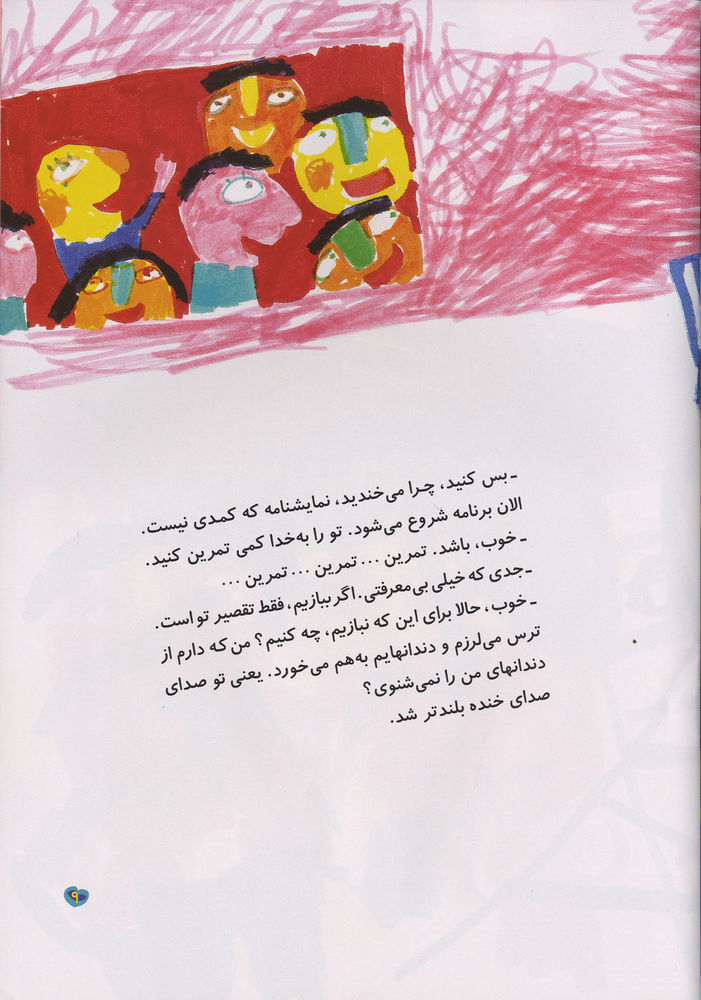 ـ بس کنید، چرا می‌خندید، نمایشنامه که کمدی نیست.
الان برنامه شروع می‌شود. تو را به‌خدا کمی تمرین کنید.
ـ خوب، باشد. تمرین ... تمرین ... تمرین ...
ـ جدی که خیلی بی‌معرفتی. اگر ببازیم، فقط تقصیر تو است.
ـ خوب، حالا برای این که نبازیم، چه کنیم؟ من که دارم از
ترس می‌لرزم و دندانهایم به‌هم می‌خورد. یعنی تو صدای
دندانهای من را نمی‌شنوی؟
صدای خنده بلندتر شد.
۹